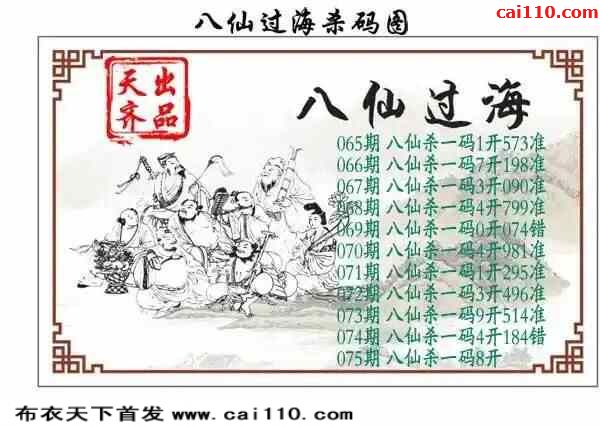 八仙过海杀码图
cai110.com
天齐
出品
八仙过海
065期 八仙杀一码1开573准
066期 八仙杀一码7开198准
067期 八仙杀一码3开090准
068期 八仙杀一码4开799准
069期 八仙杀一码0开074错
070期 八仙杀一码4开981准
071期 八仙杀一码1开295准
072期 八仙杀一码3开496准
073期 八仙杀一码9开514准
074期 八仙杀一码4开184错
075期 八仙杀一码8开
布衣天下首发 www.cai110.com